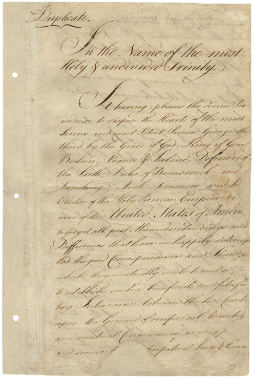 Duplicate.
In the Name of the most
Holy & undivided Trinity.
It having pleased the divine Pro-
vidence to dispose the Hearts of the most
Serene and most Potent Prince George the
third by the Grace of God, King of Great
Britain, France & Ireland, Defender of
the Faith, Duke of Brunswick and
Lunebourg, Arch Treasurer and Prince
Elector of the Holy Roman Empire &c
and of the United States of America
to forget all past Misunderstandings and
Differences that have unhappily interrup-
ted the good Correspondence and Friendship
which they mutually wish to restore;
to establish such a beneficial & satisfac-
tory Intercourse between the two Countries
upon the Ground of reciprocal Advantages
and mutual Convenience as may
and secure
perpetual Peace & Harmony